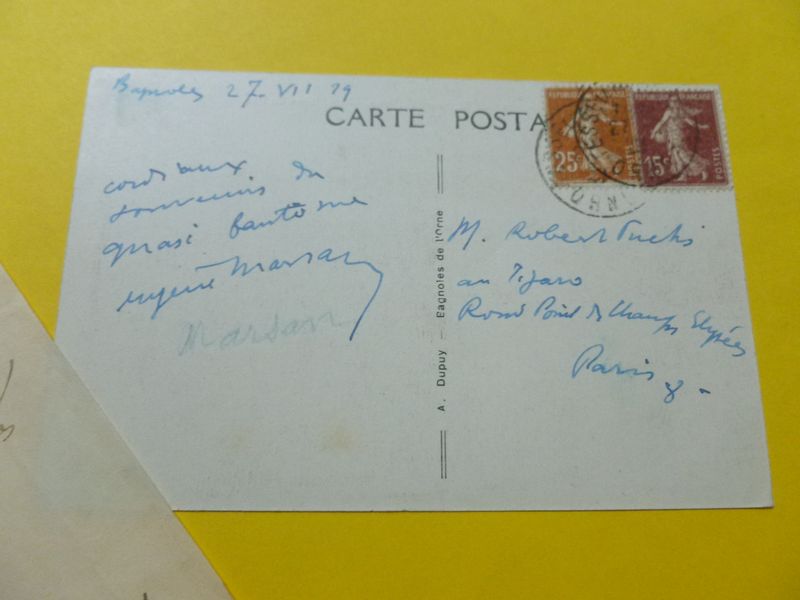 Bagnoles 27 VII 29
CARTE POSTA
REPUBLIQUE FRANÇAISE
25c
POSTES
15c
POSTES
cordiaux
souvenirs du
quasi fantôme
eugène Marsan
Marsan
A. Dupuy — Bagnoles de l'Orne
M. Robert Fuchs
au Figaro
Rond Point des Champs Elysées
Paris 8